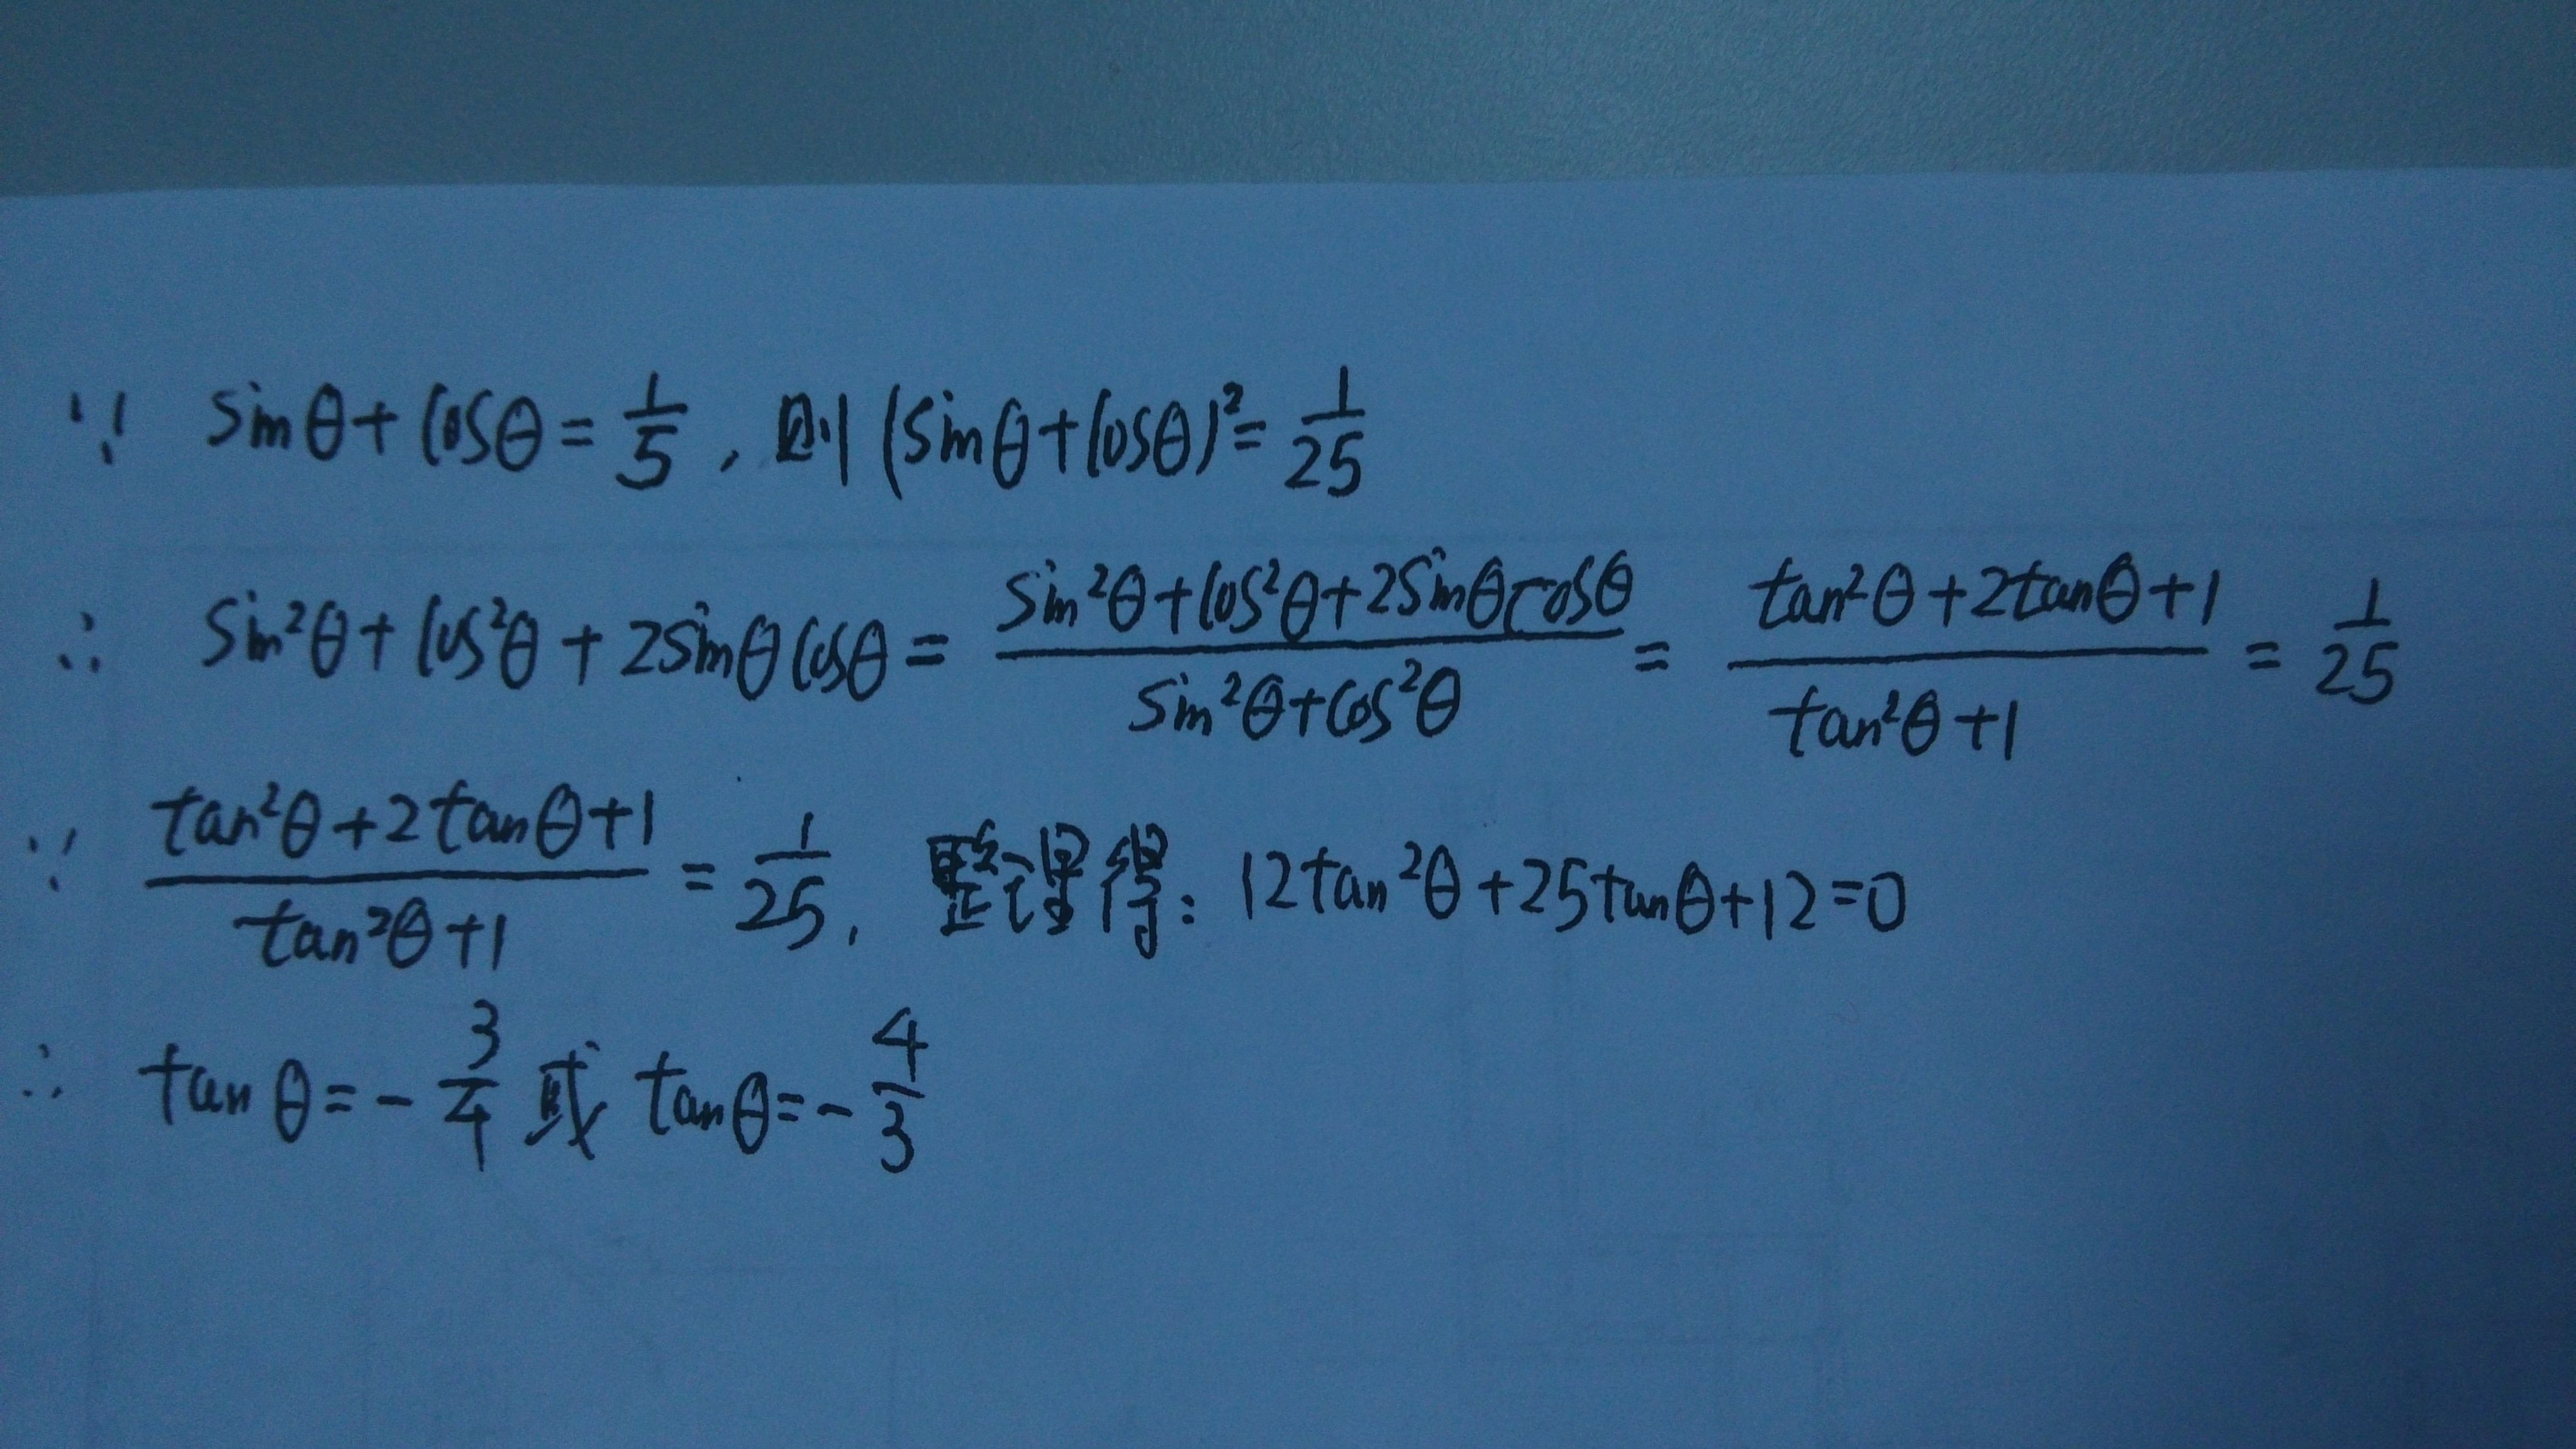 ∵ sinθ+cosθ=1/5，则(sinθ+cosθ)²=1/25
∴ sin²θ+cos²θ+2sinθcosθ=(sin²θ+cos²θ+2sinθcosθ)/(sin²θ+cos²θ)=(tan²θ+2tanθ+1)/(tan²θ+1)=1/25
∵ (tan²θ+2tanθ+1)/(tan²θ+1)=1/25，整理得：12tan²θ+25tanθ+12=0
∴ tanθ=-3/4或tanθ=-4/3